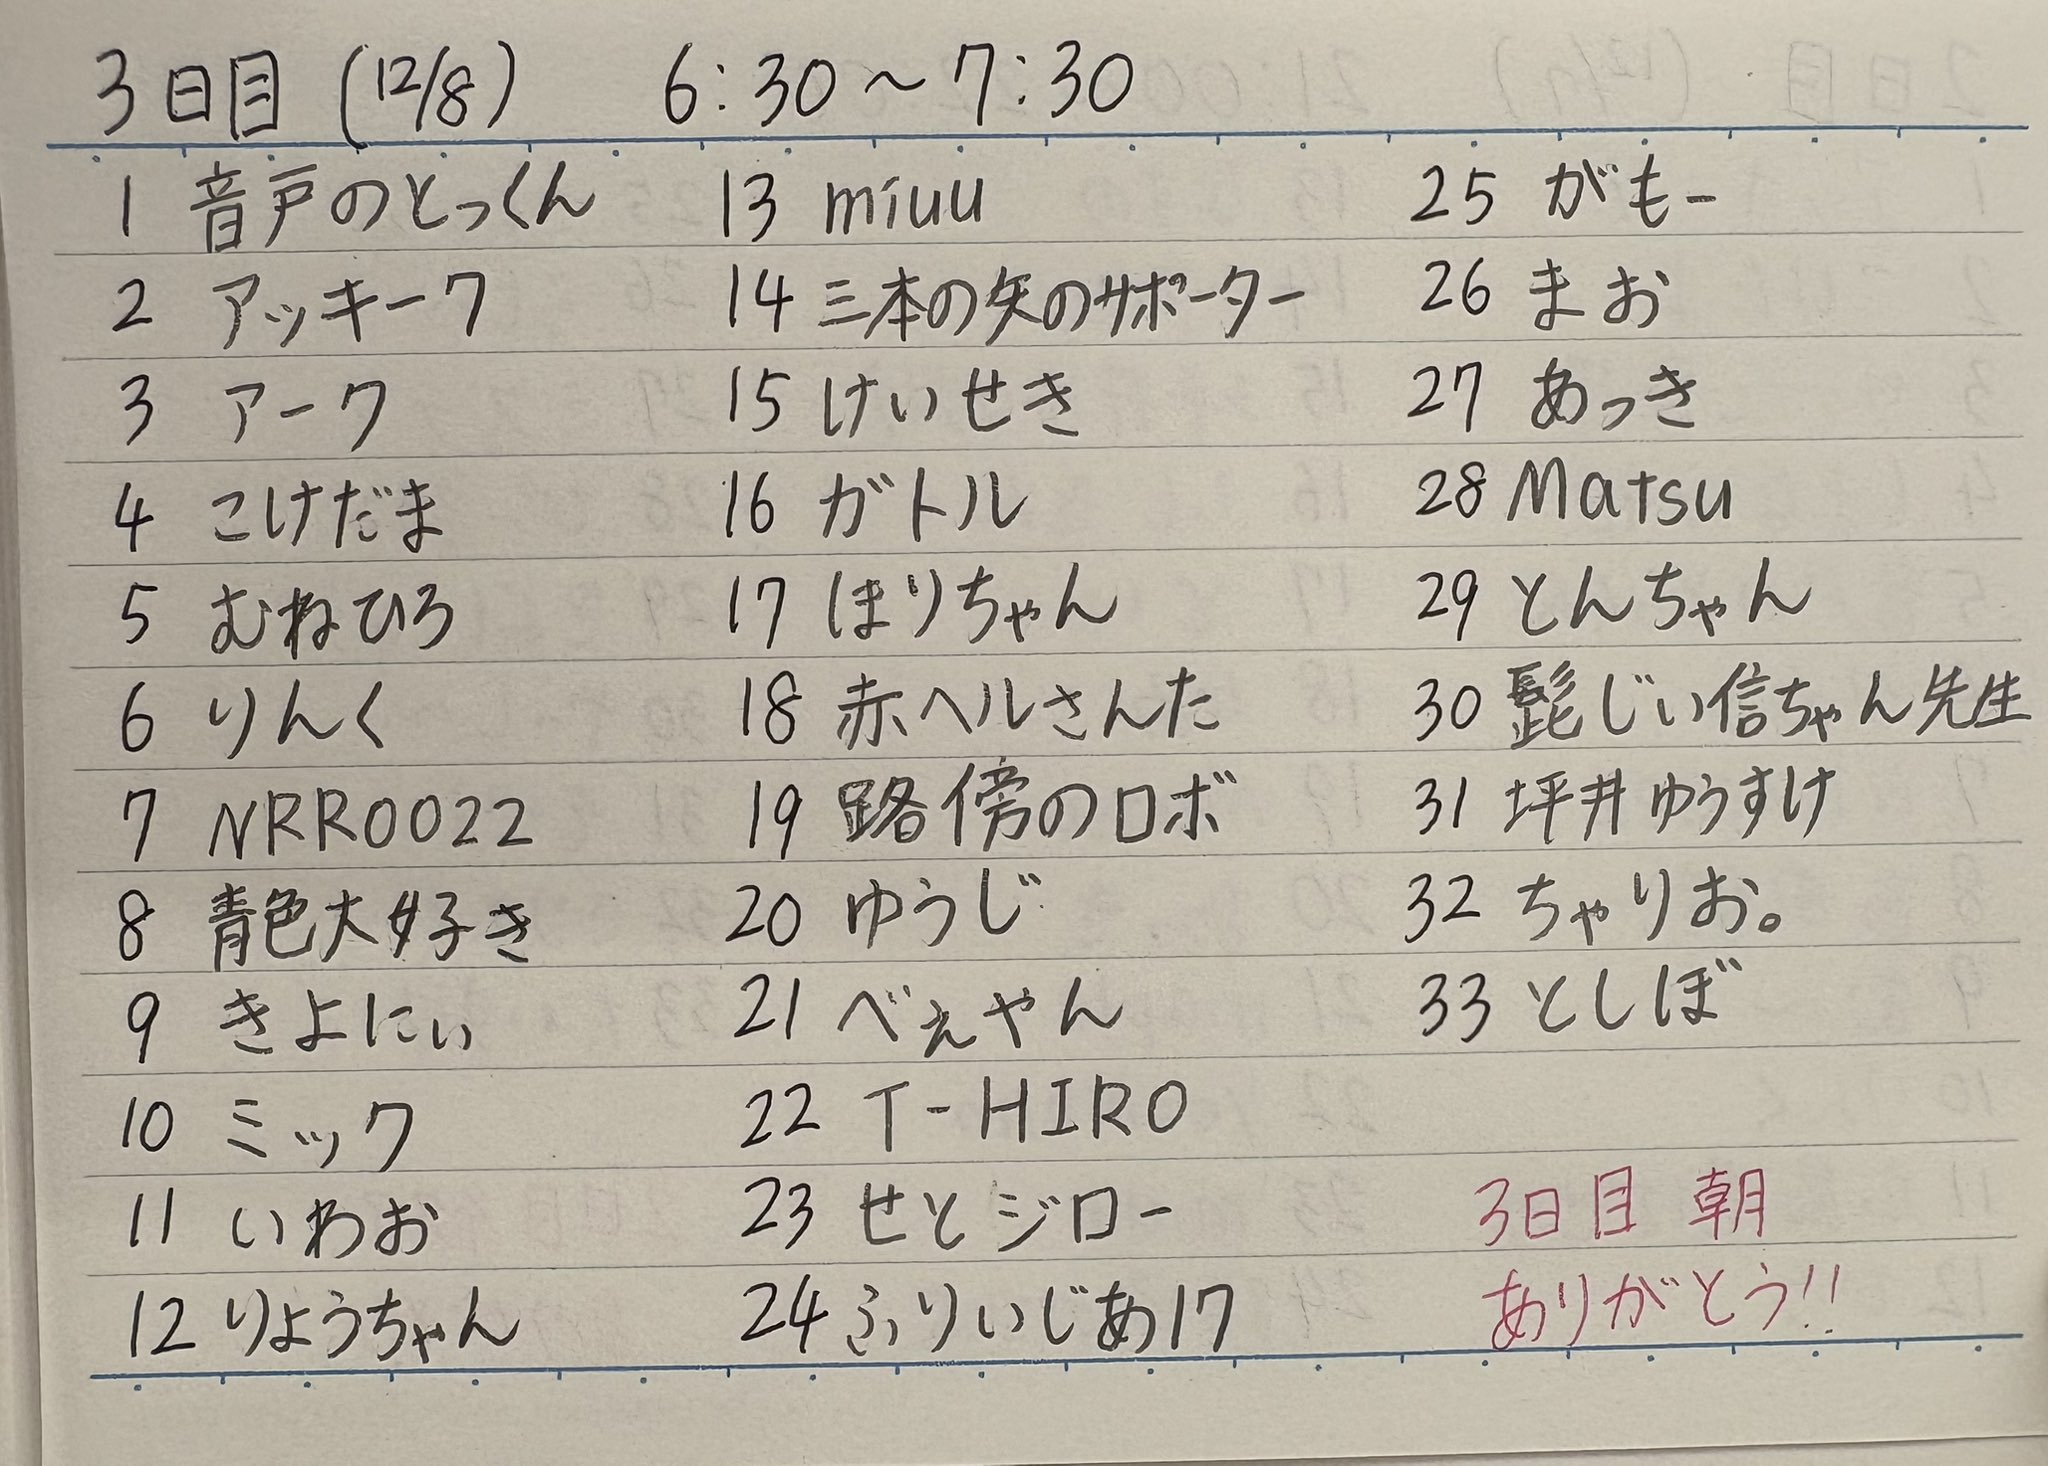 3日目 (12/8) 6:30～7:30
1 音戸のとっくん
2 アッキーク
3 アーク
4 こけだま
5 むねひろ
6 りんく
7 NRR0022
8 青色大好き
9 きよにぃ
10 ミック
11 いわお
12 りょうちゃん
13 miuu
14 三本の矢のサポーター
15 けいせき
16 ガトル
17 ほりちゃん
18 赤ヘルさんた
19 路傍のロボ
20 ゆうじ
21 べぇやん
22 T-HIRO
23 せとジロー
24 ふりいじあ17
25 がもー
26 まお
27 あっき
28 Matsu
29 とんちゃん
30 髭じい信ちゃん先生
31 坪井ゆうすけ
32 ちゃりお。
33 としぼ
3日目 朝
ありがとう!!